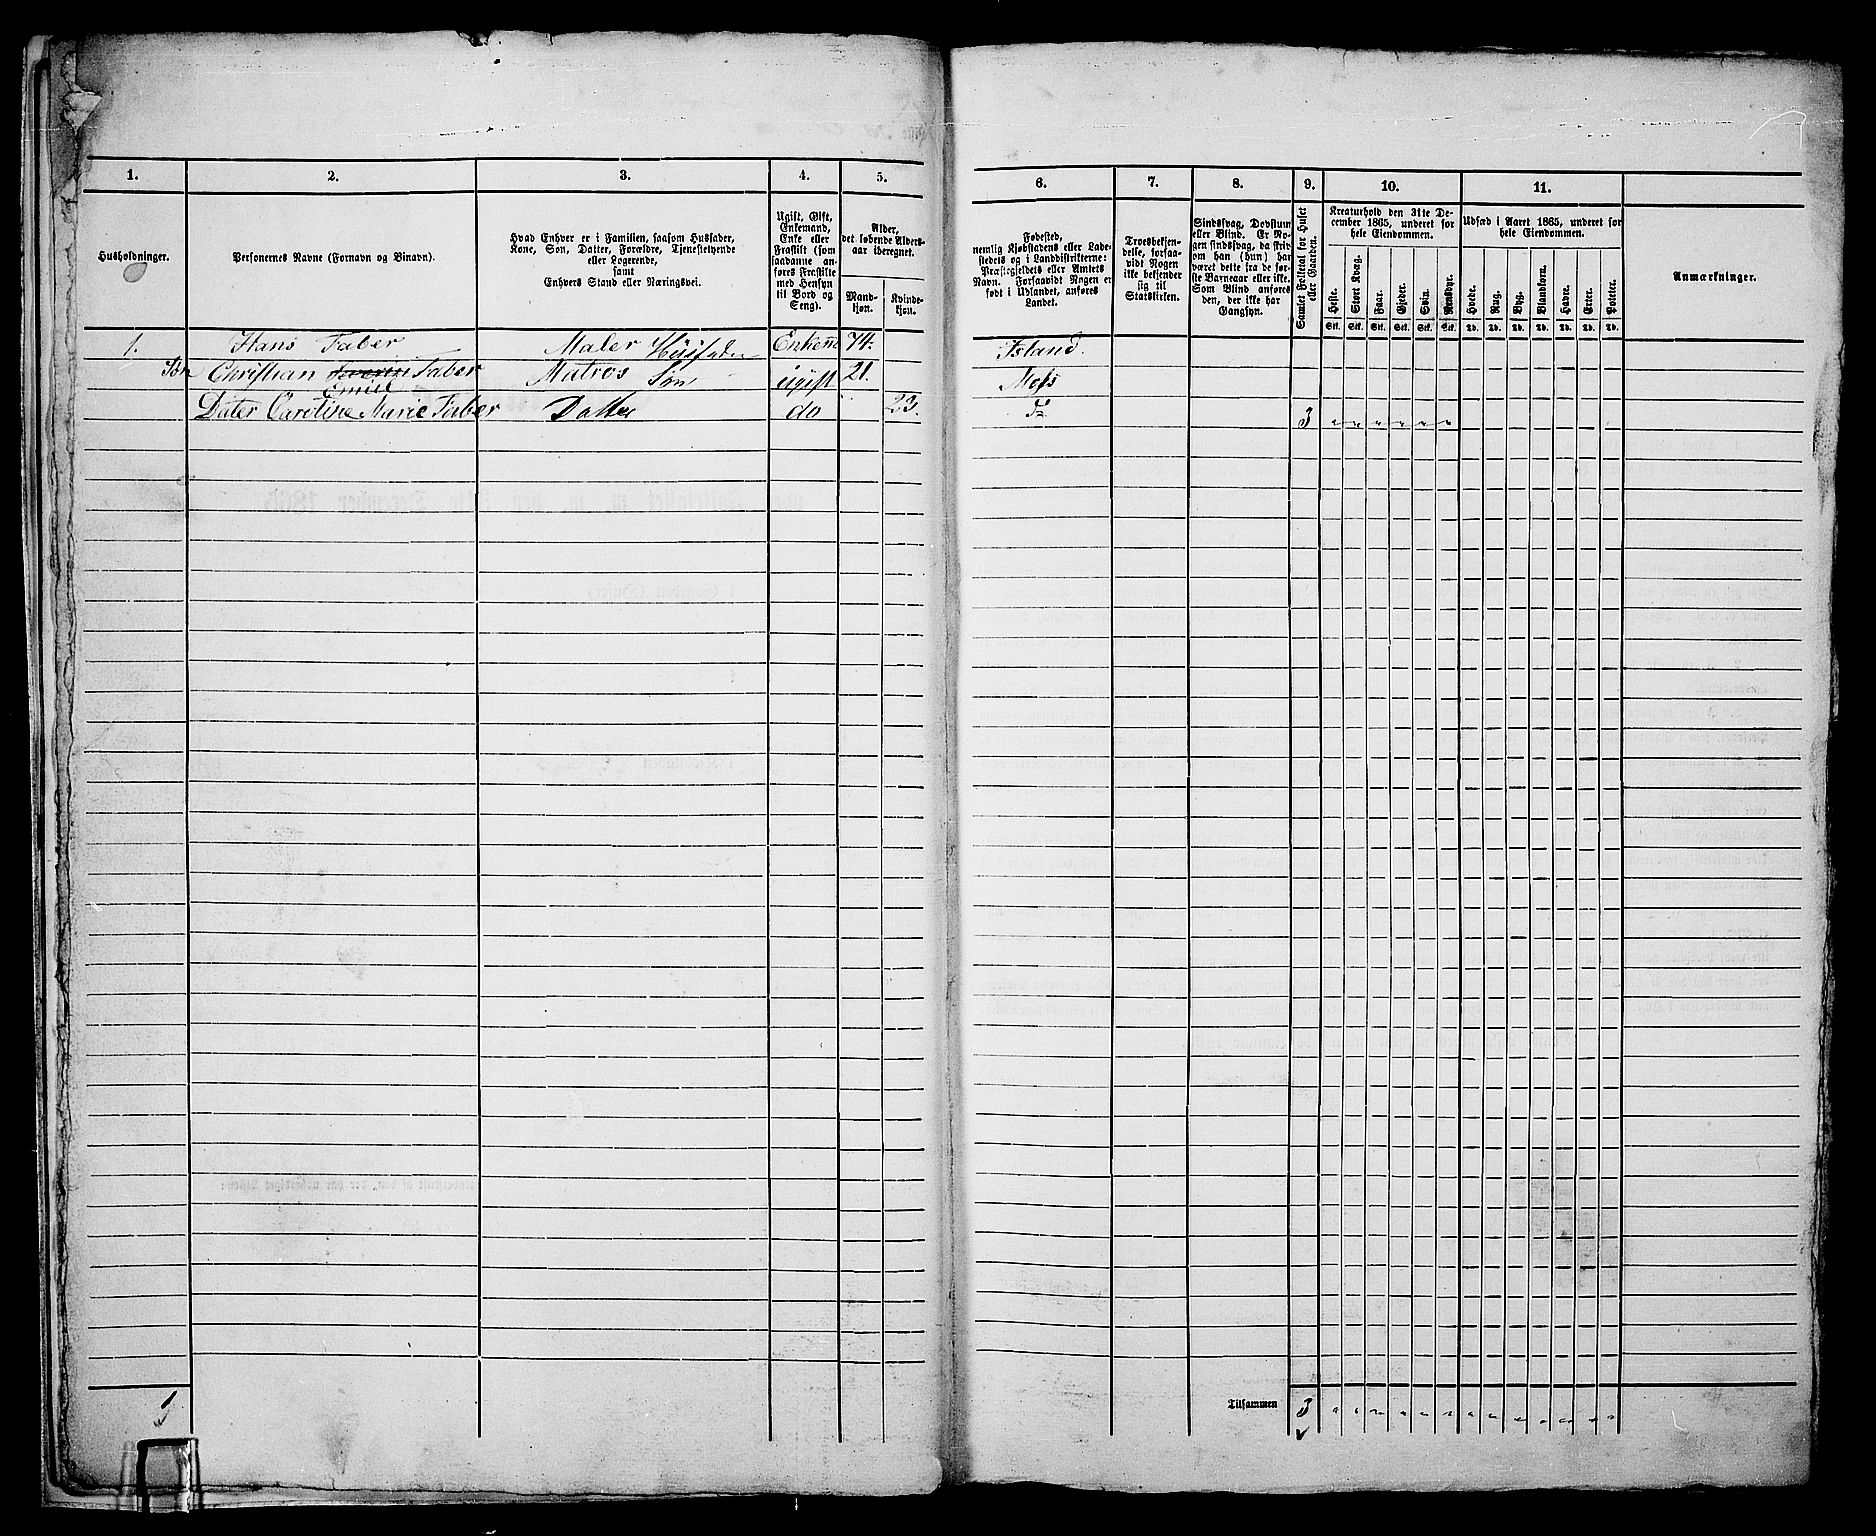 1. 2. 3. 4. 5. 6. 7. 8. 9. 10. 11.
Husholdninger.
Personernes Navne (Fornavn og Binavn).
Hvad Enhver er i Familien, saasom Husfader,
Kone, Søn, Datter, Forældre, Tjenestetyende
eller Logerende,
samt
Enhvers Stand eller Næringsvei.
Ugift, Gift,
Enkemand,
Enke eller
Fraskilt (som
saadanne an-
føres Fraskilte
med Hensyn
til Bord og
Seng).
Alder,
det løbende Alders-
aar iberegnet.
Mand-
kjøn.
Kvinde-
kjøn.
Fødested,
nemlig Kjøbstadens eller Lade-
stedets og i Landdistrikterne:
Præstegjeldets eller Amtets
Navn. Forsaavidt Nogen er
født i Udlandet, anføres
Landet.
Troesbekjen-
delse, forsaa-
vidt Nogen
ikke bekjender
sig til
Statskirken.
Sindssvag, Døvstum
eller Blind. Er No-
gen sindssvag, da skriv
om han (hun) har
været dette fra de før-
ste Barneaar eller ikke.
Som Blind anføres
den, der ikke har
Gangsyn.
Samlet Folketal for Huset
eller Gaarden.
Kreaturhold den 31te De-
cember 1865, underet for
hele Eiendommen.
Heste. Stort Kvæg. Faar. Gjeder. Svin. Rensdyr.
Stk. Stk. Stk. Stk. Stk. Stk.
Udsæd i Aaret 1865, underet for
hele Eiendommen.
Hvede. Rug. Byg. Blandkorn. Havre. Erter. Poteter.
Td. Td. Td. Td. Td. Td. Td.
Anmærkninger.
1. Hans Faber Maler Husfader Enkem 74. Island.
Søn Christian Faber Matros Søn ugift 21. Moss
Emiel
Dater Caroline Marie Faber Datter do 23. do 3 " " " " " "
1
Tilsammen 3 " " " " " " " " " " " " "